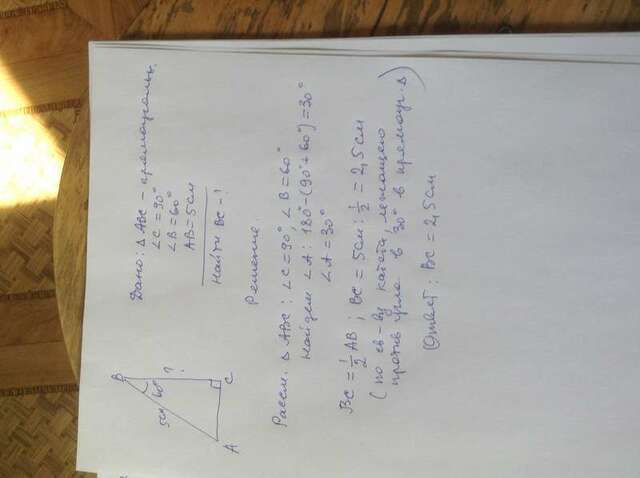 B
5см
60°
?
A
C
Дано: △ ABC – прямоугольн.
∠C = 90°
∠B = 60°
AB = 5см
Найти BC – ?
Решение.
Рассм. △ ABC: ∠C = 90°, ∠B = 60°
Найдем ∠A: 180° – (90° + 60°) = 30°
∠A = 30°
BC = 1/2 AB ; BC = 5см : 1/2 = 2,5см
( по св-ву катета, лежащего
против угла в 30° в прямоуг. △ )
Ответ: BC = 2,5см